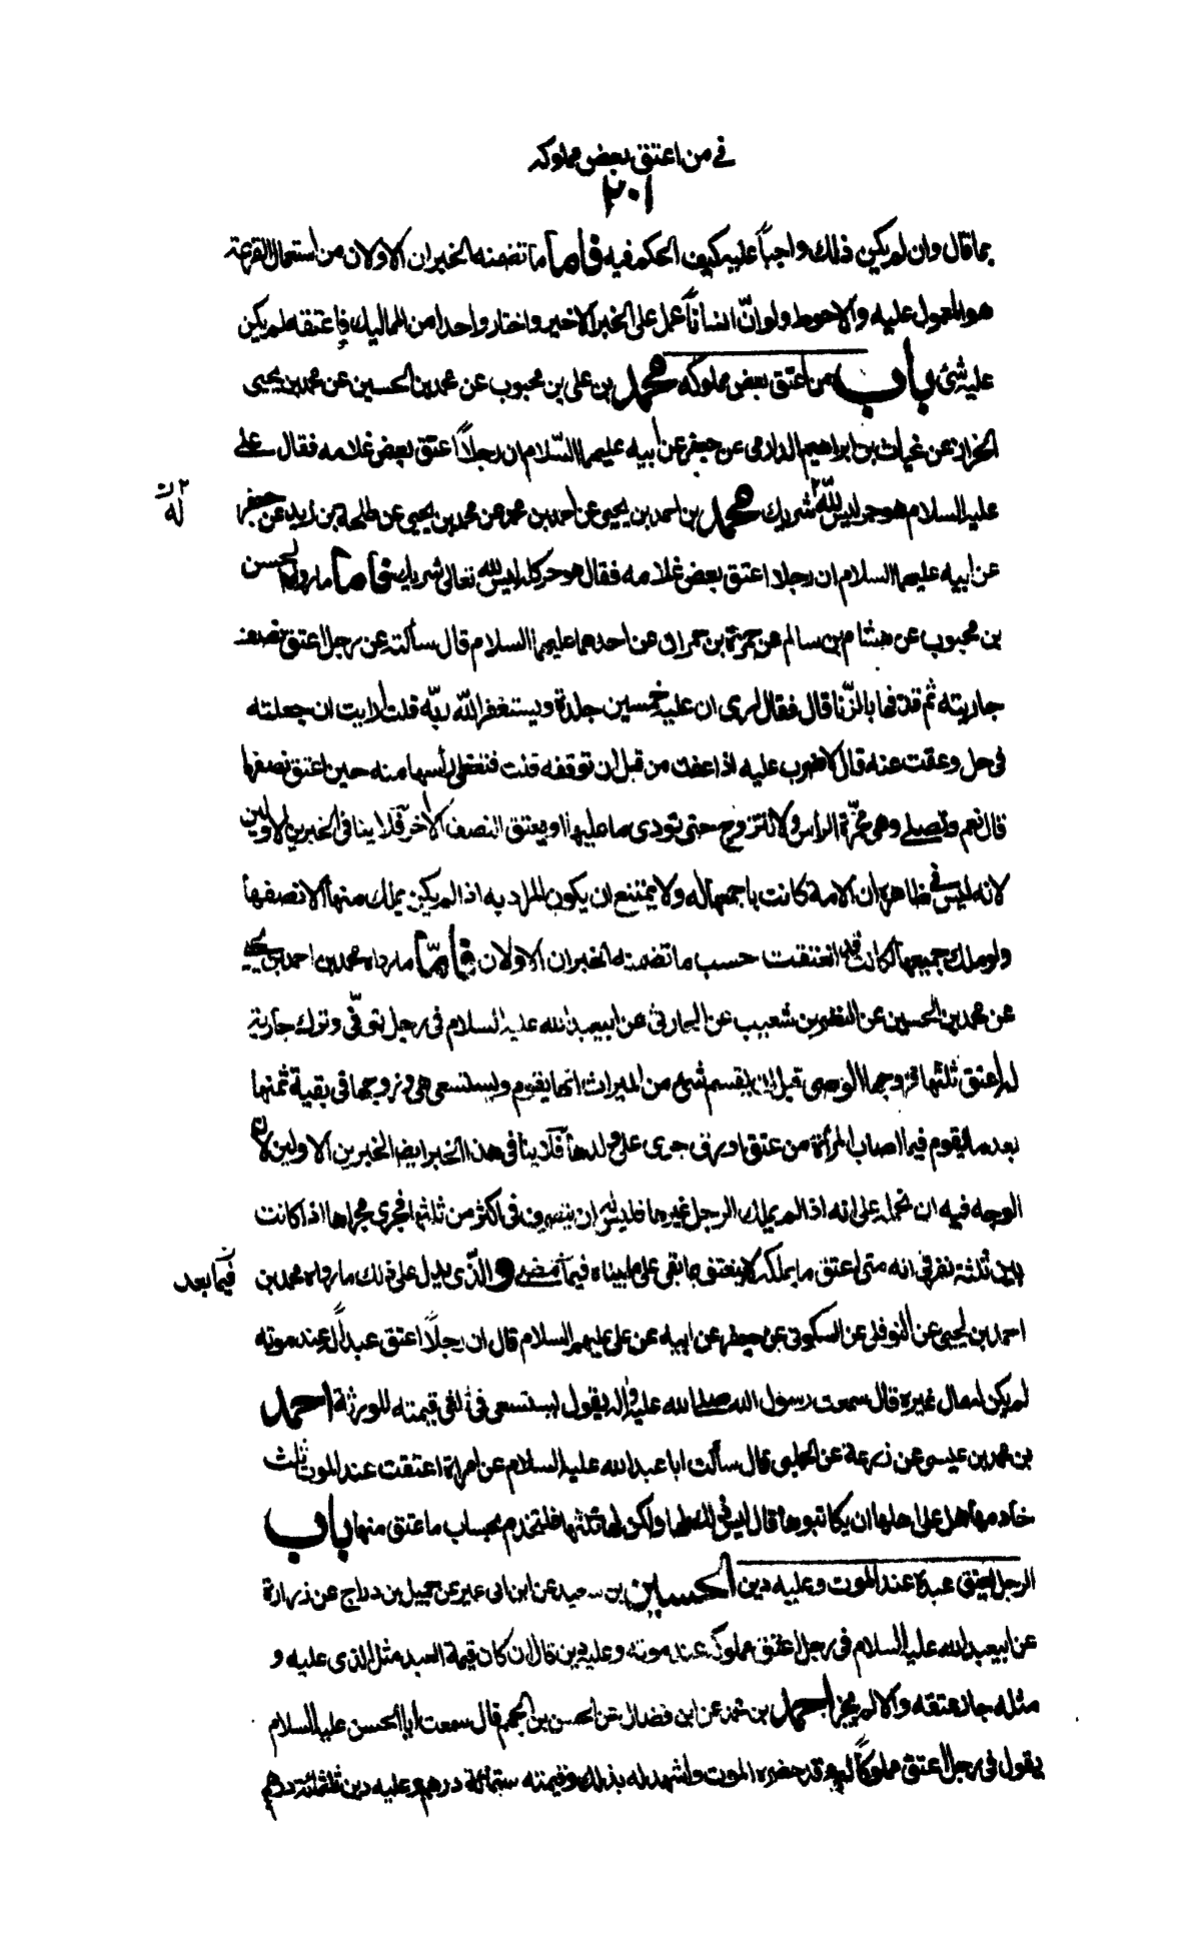 في من اعتق بعض مملوكه
٢٠١
بما قال وان لم يكن ذلك واجباً عليه كيف الحكم فيه فاما ما تضمنه الخبران الاولان من استعمال القرعة
هو المعول عليه والاحوط ولو انّ انساناً عمل على الخبر الاخير واختار واحدا من المماليك فاعتقه لم يكن
عليه شئ باب من اعتق بعض مملوكه محمد بن على بن محبوب عن محمد بن الحسين عن محمد بن يحيى
الخزاز عن غياث بن ابراهيم الدارمى عن جعفر عن ابيه عليهما السّلام ان رجلاً اعتق بعض غلامه فقال على
عليه السلام هو حر ليس لله شريك محمد بن احمد بن يحيى عن احمد بن محمد عن محمد بن يحيى عن طلحة بن زيد عن جعفر
له
عن ابيه عليهما السلام ان رجلا اعتق بعض غلامه فقال هو حر كله ليس لله تعالى شريك فاما ما رواه الحسن
بن محبوب عن هشام بن سالم عن حمزة بن حمران عن احدهما عليهما السلام قال سألته عن رجل اعتق نصف
جاريته ثم قذفها بالزّنا قال فقال ارى ان عليه خمسين جلدة ويستغفر اللّه ربّه قلت ارايت ان جعلته
فى حل وعفت عنه قال لا ضرب عليه اذا عفت من قبل ان توقفه قلت فتغطى رأسها منه حين اعتق نصفها
قال نعم وتصلى وهى مخمّرة الراس ولا تتزوج حتى تودى ما عليها او يعتق النصف الآخر فلا ينافى الخبرين الاولين
لانه ليس فى ظاهره ان الامة كانت باجمعها له ولا يمتنع ان يكون المراد به اذا لم يكن يملك منها الا نصفها
ولو ملك جميعها لكانت قد انعتقت حسب ما تضمنه الخبران الاولان فامّا ما رواه محمد بن احمد بن يحيى
عن محمد بن الحسين عن النضر بن شعيب عن الحارثى عن ابيعبد الله عليه السلام فى رجل توفّى وترك جارية
له اعتق ثلثها فتزوجها الوصى قبل ان يقسم شئ من الميراث انها يقوم وتستسعى هى وزوجها فى بقية ثمنها
بعد ما يقوم فما اصاب المرأة من عتق او رق جرى على ولدها فلا ينافى هذا الخبر ايضا الخبرين الاولين لان
الوجه فيه ان نحمله على انه اذا لم يملك الرجل غيرها فليس له ان يتصرف فى اكثر من ثلثها فجرى مجراها اذا كانت
بين ثلثة نفر فى انه متى اعتق ما يملكه لا ينعتق ما بقى على ما بيناه فيما مضى والّذى يدل على ذلك ما رواه محمد بن
فيما بعد
احمد بن يحيى عن النوفلى عن السكونى عن جعفر عن ابيه عن على عليهم السلام قال ان رجلاً اعتق عبداً له عند موته
لم يكن له مال غيره قال سمعت رسول الله صلى الله عليه واله يقول يستسعى فى ثلثى قيمته للورثة احمد
بن محمد بن عيسى عن زرعة عن الحلبى قال سألت ابا عبد الله عليه السلام عن امراة اعتقت عند الموت ثلث
خادمها هل على اهلها ان يكاتبوها قال ليس ذلك لها ولكن لها ثلثها فلتخدم بحساب ما عتق منها باب
الرجل يعتق عبده عند الموت وعليه دين الحسين بن سعيد عن ابن ابى عمير عن جميل بن دراج عن زرارة
عن ابيعبد الله عليه السلام فى رجل اعتق مملوكه عند موته وعليه دين قال ان كان قيمة العبد مثل الذى عليه و
مثله جاز عتقه والا لم يجز احمد بن محمد عن ابن فضال عن الحسن بن الجهم قال سمعت ابا الحسن عليه السلام
يقول فى رجل اعتق مملوكاً له وقد حضره الموت واشهد له بذلك وقيمته ستمائة درهم وعليه دين ثلثمائة درهم